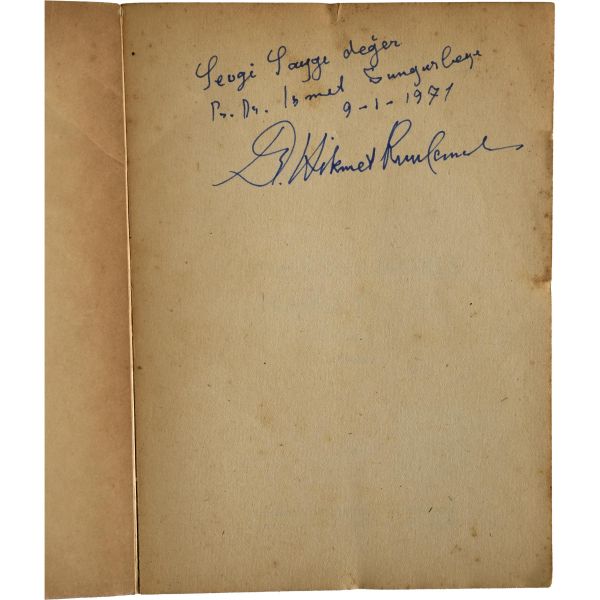 Sevgi Saygı değer
Pr. Dr. İsmet Sungurbeye
9-1-1971
Dr. Hikmet Kıvılcımlı